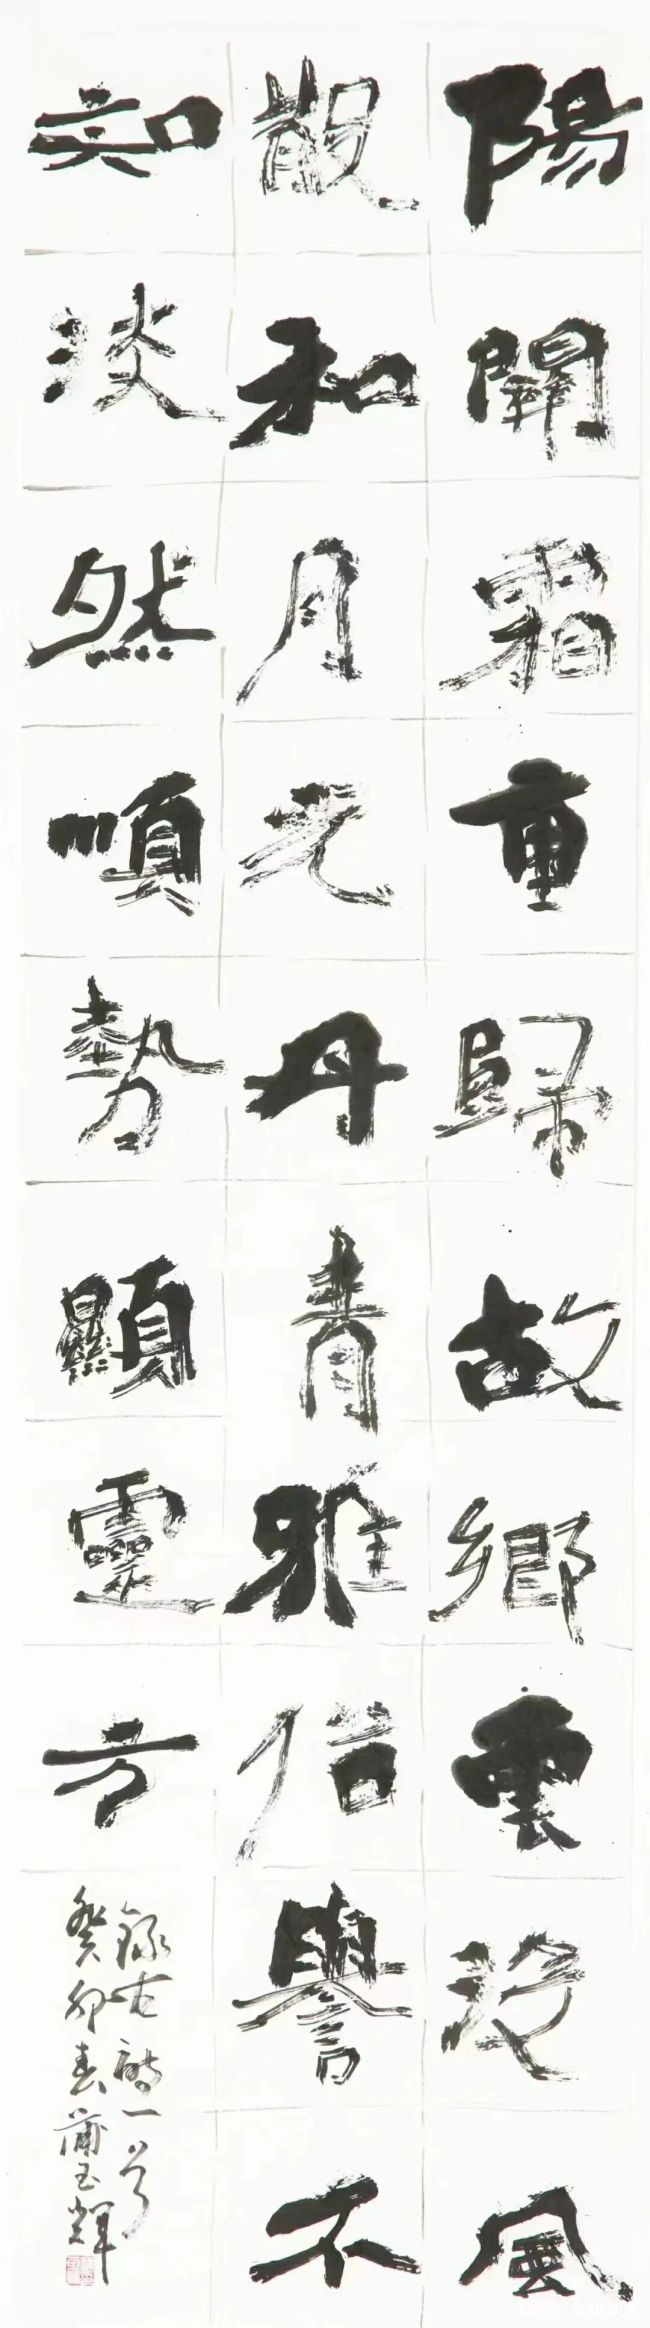 陽關霜重歸故鄉雲没風
散和月光丹青雅俗譽不
知淡然順勢顯靈方
錄古詩一首
癸卯春蒲玉輝